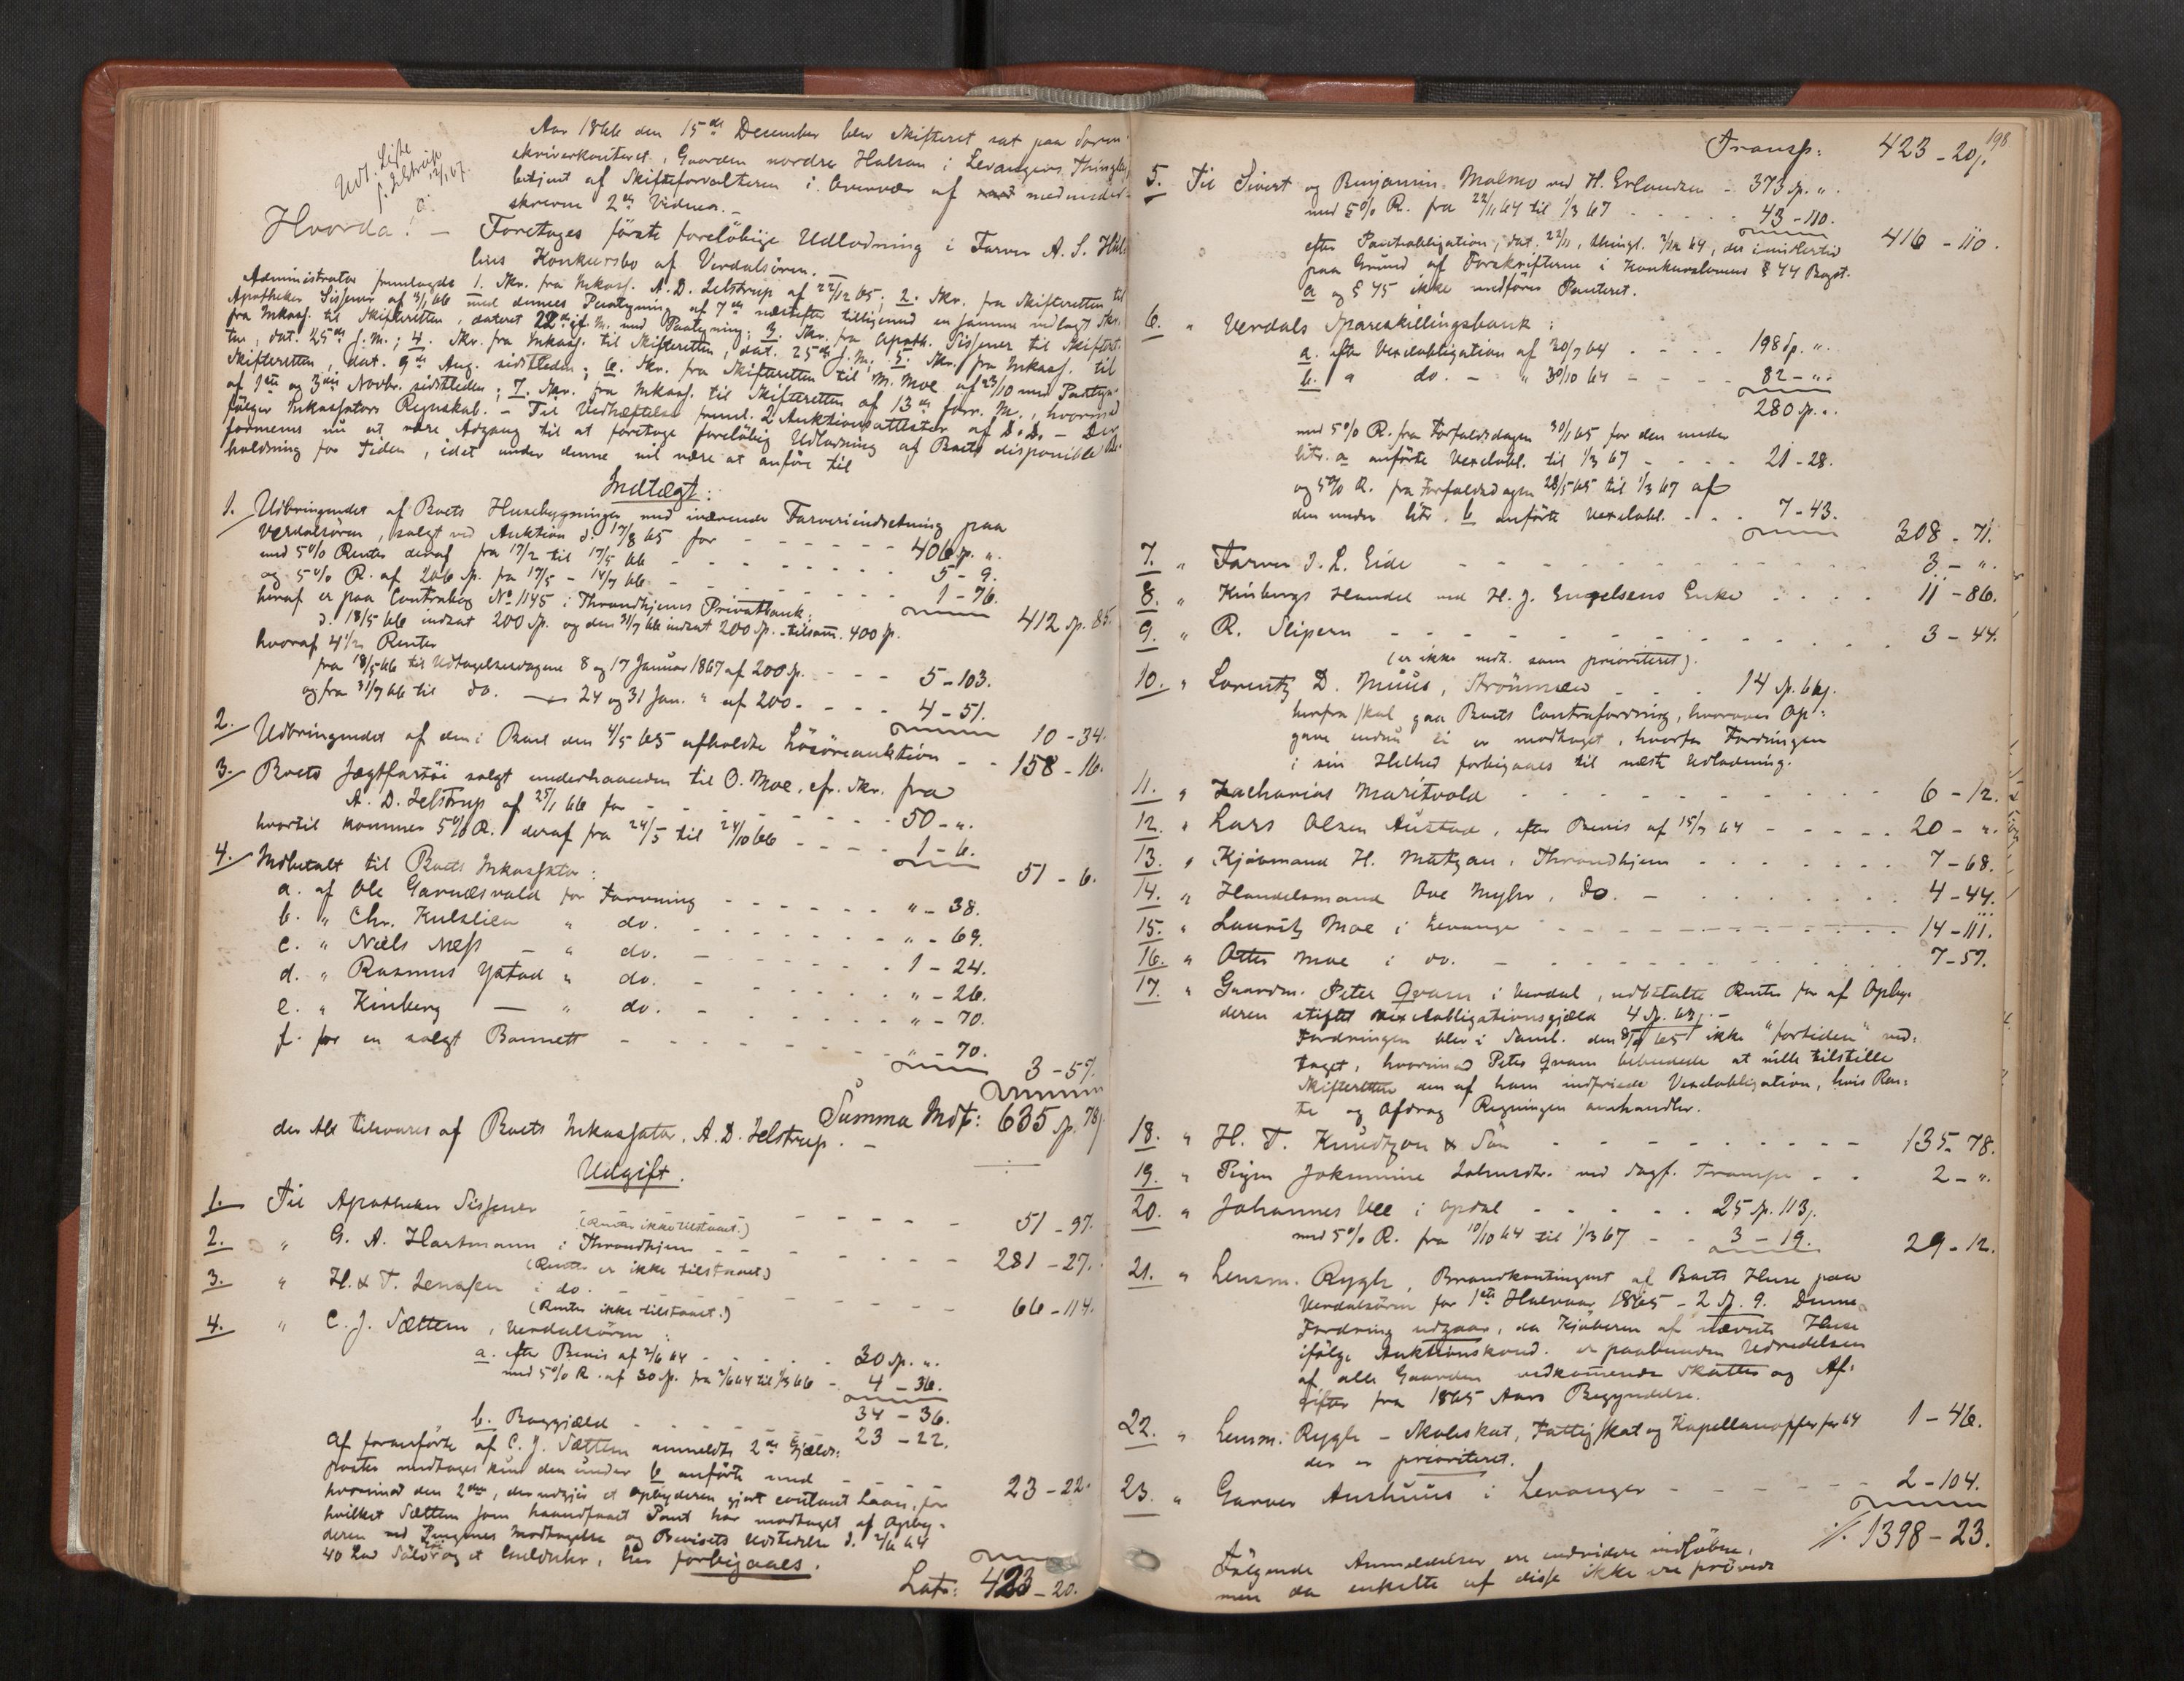 Udt. Liste
f. Jelstrup
12/1 67.
Aar 1866 den 15de December blev Skifteret sat paa Soren-
skriverkontoret, Gaarden nordre Halsan i Levangers Thinglag,
betjent af Skifteforvalteren i Overvær af med medunder-
skrevne 2de Vidner. –
Hvorda! – Foretoges förste foreløbige Udlodning i Farver A. S. Hal-
lins Konkursbo af Verdalsören. –
Administrator fremlagde 1. Skr. fra Inkass. A. D. Jelstrup af 22/12 65; 2. Skr. fra Skifteretten til
Apotheker Sissener af 3/1 66 med dennes Paategning af 7de næstefter tilligemed en samme vedlagt Skr.
fra Inkass. til Skifteretten, dateret 22de s. M. med Paategning; 3. Skr. fra Apoth. Sissener til Skifteret-
ten, dat. 25de s. M.; 4. Skr. fra Inkass. til Skifteretten, dat. 25de s. M.; 5. Skr. fra Inkass. til
Skifteretten, dat. 9de Aug. sidstleden; 6. Skr. fra Skifteretten til M. Moe af 23/10 med Paategn.
af 1ste og 3die Novbr. sidstleden; 7. Skr. fra Inkass. til Skifteretten af 13de forr. M., hvormed
fölger Inkassators Regnskab. – Til Vedhæftelse freml. 2 Auktionsattester af D. D. – Der
formenes nu at være Adgang til at foretage foreløbig Udlodning af Boets disponible Be-
holdning for Tiden, idet under denne vil være at anföre til
Indtægt:
1. Udbringendet af Boets Husebygninger med iværende Farveriindretning paa
Verdalsören, solgt ved Auktion d. 17/8 65 for - - - - - 406 Sp. "
med 5% Renter deraf fra 17/2 til 17/5 66 - - - - - 5 - 9.
og 5% R. af 206 Sp. fra 17/5 - 14/7 66 - - - - - 1 - 76.
412 Sp. 85.
heraf er paa Contrabog No 1145 i Throndhjems Privatbank:
d. 18/5 66 indsat 200 Sp. og den 31/7 66 indsat 200 Sp. - tilsam. 400 Sp.
hvoraf 4½ Renter
fra 18/5 66 til Udtagelsesdagene 8 og 17 Januar 1867 af 200 Sp. - - - 5 - 103.
og fra 31/7 66 til do. — 24 og 31 Jan. " af 200 - - - - 4 - 51.
10 - 34.
2. Udbringendet af den i Boet den 4/5 65 afholdte Lösöreauktion - - 158 - 16.
3. Boets Jægtfartöi solgt underhaanden til O. Moe, cfr. Skr. fra
A. D. Jelstrup af 25/1 66 for - - - - - 50 - ".
hvortil kommer 5% R. deraf fra 24/5 til 24/10 66 - - - - 1 - 6.
51 - 6.
4. Indbetalt til Boets Inkassator:
a. af Ole Garnæsvald for Farvning - - - - - - " - 38.
b. " Chr. Kulslien " do. - - - - - - " - 69.
c. " Niels Næss - " do. - - - - - - 1 - 24.
d. " Rasmus Ystad " do. - - - - - - " - 26.
e. " Kinberg — " do. - - - - - - " - 70.
f. for en solgt Bannett - - - - - - " - 70.
3 - 57.
Summa Indt: 635 Sp. 78 s.
der Alt tilsvares af Boets Inkassator, A. D. Jelstrup. –
Udgift.
1. Til Apotheker Sissener - - - - - - 51 - 97.
(Renter ikke tilstaaet.)
2. " G. A. Hartmann i Throndhjem - - - - - - 281 - 27.
(Renter er ikke tilstaaet)
3. " H. & T. Jenssen i do. - - - - - - 66 - 114.
(Renter ikke tilstaaet.)
4. " C. J. Sættem, Verdalsören:
a. efter Bevis af 2/6 64 - - - - - 30 Sp. ".
med 5% R. af 30 Sp. fra 2/6 64 til 1/3 66 - 4 - 36.
34 - 36.
b. Boggjæld - - - - - 23 - 22.
Af foranförte af C. J. Sættem anmeldte 2de Gjælds-
poster medtages kun den under b anförte med - - - 23 - 22.
hvorimod den 2den, der udgjör et Opbyderen gjort contant Laan, for
hvilket Sættem som haandfaaet Pant har modtaget af Opby-
deren ved Pengenes Modtagelse og Bevisets Udstedelse d. 2/6 64
40 Lod Sölvtöi og et Guldur, her forbigaaes.
Lats: 423 - 20.
198
Transp: 423 - 20 s.
5. Til Sivert og Benjamin Malmo ved H. Erlandsen - 373 Sp. ".
med 5% R. fra 22/11 64 til 1/3 67 - - - - - 43 - 110.
416 - 110.
efter Pantobligation, dat. 22/11, thingl. 2/12 64, der imidlertid
paa Grund af Forskrifterne i Konkursloven § 44 Bogst.
a og § 45 ikke medförer Panteret.
6. " Verdals Spareskillingsbank:
a. efter Vexelobligation af 30/7 64 - - - - 198 Sp. ".
b. " do. - " 30/10 64 - - - - 82 - ".
280 Sp. ".
med 5% R. fra Forfaldsdagen 30/1 65 for den under
litr. a anförte Vexelobl. til 1/3 67 - - - - 21 - 28.
og 5% R. fra Forfaldsdagen 28/5 65 til 1/3 67 af
den under litr. b anförte Vexelobl. - - - 7 - 43.
308 - 71.
7. " Farver J. L. Eide - - - - - - 3 - ".
8. " Kinbergs Handel ved H. J. Engelsens Enke - - - - 11 - 86.
9. " R. Slipern - - - - - - 3 - 44.
(er ikke medt. som prioriteret).
10. " Lorentz D. Müüs, Strömmen - - - 14 Sp. 66 s.
herfra skal gaa Boets Contrafordring, hvorover Op-
gave endnu ei er modtaget, hvorfor Fordringen
i sin Helhed forbigaaes til næste Udlodning.
11. " Zacharias Maritvold - - - - - - 6 - 12.
12. " Lars Olsen Austad, efter Bevis af 15/7 64 - - - - 20 - ".
13. " Kjöbmand H. Matzau, Throndhjem - - - - - - 7 - 68.
14. " Handelsmand Ove Myhr, do. - - - - - - 4 - 44.
15. " Lauritz Moe i Levanger - - - - - - 14 - 111.
16. " Otter Moe i do. - - - - - - 7 - 57.
17. " Gaardm. Peter Qvam i Verdal, udbetalte Renter for af Opby-
deren stiftet Vexelobligationsgjæld 4 Sp. 63 s. -
Fordringen blev i Saml. den 65 ikke "fortiden" ved-
taget, hvorimod Peter Qvam bebudede at ville tilstille
Skifteretten den af ham indfriede Vexelobligation, hvis Ren-
te og Afdrag Regningen omhandler.
18. " H. T. Knudtzon & Sön - - - - - - 135 - 78.
19. " Pigen Jokumine Johnsdtr. ved Sagf. Trampe - - 2 - ".
20. " Johannes Vee i Opdal - - - - - 25 Sp. 113 s.
med 5% R. fra 10/10 64 til 1/3 67 - - 3 - 19.
29 - 12.
21. " Lensm. Rygh, Brandkontingent af Boets Huse paa
Verdalsören for 1ste Halvaar 1865 - 2 Sp. 9. Denne
Fordring udgaar, da Kjöberen af nævnte Huse
ifölge Auktionskond. er paabunden Udredelsen
af alle Gaarden vedkommende Skatter og Af-
gifter fra 1865 Aars Begyndelse.
22. " Lensm. Rygh - Skoleskat, Fattigskat og Kapellanoffer for 64 1 - 46.
der er prioriteret.
23. " Garver Aushuus i Levanger - - - - - - 2 - 104.
./. 1398 - 23.
Fölgende Anmeldelser ere endvidere indløbne,
men da enkelte af disse ikke ere prövede